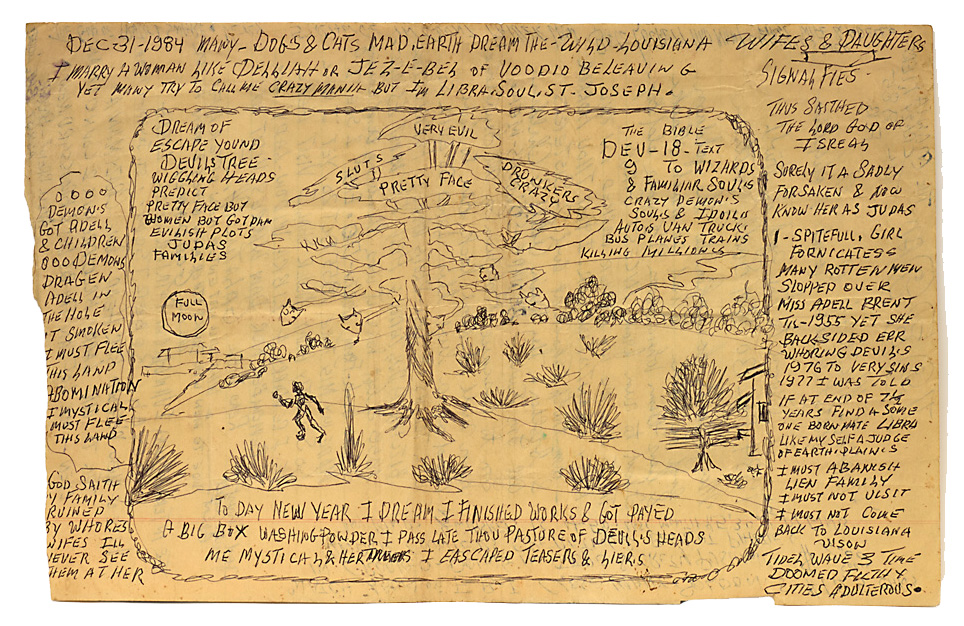 DEC 31-1984 MANY - DOGS & CATS MAD. EARTH DREAM THE - WILD - LOUISIANA
I MARRY A WOMAN LIKE DELLIAH OR JEZ-E-BEL OF VOODIO BELEAVING
YET MANY TRY TO CALL ME CRAZY MANIA BUT I'M LIBRA. SOUL. ST. JOSEPH.
WIFES & DAUGHTERS
SIGNALFIES -
THUS SAITHED
THE LORD GOD OF
ISREAL
SORELY IT A SADLY
FORSAKEN & NOW
KNOW HER AS JUDAS
1 - SPITEFULL, GIRL
FORNICATESS
MANY ROTTEN MEN
SLOPPED OVER
MISS ADELL BRENT
TIL-1955 YET SHE
BACKSIDED ERR
WHORING DEVILS
1976 TO VERY SINS
1977 I WAS TOLD
IF AT END OF 7½
YEARS FIND A SOME
ONE BORN HATE LIBRA
LIKE MY SELF A JUDGE
OF EARTH. PLAINIS
I MUST ABANISH
LIEN FAMILY
I MUST NOT VISIT
I MUST NOT COME
BACK TO LOUISIANA
VISON
TIDEL WAVE 3 TIME
DOOMED FILTHY
CITIES ADULTEROUS.
DREAM OF
ESCAPE YOUND
DEVILS TREE -
WIGGLING HEADS
PREDICT
PRETTY FACE BUT
WOMEN BUT GOT DAM
EVILISH PLOTS
JUDAS
FAMILIES
VERY EVIL
SLUTS
PRETTY FACE
DRONKERS
CRAZY
THE BIBLE
DEU-18-TEXT
9 TO WIZARDS
& FAMILIAR SOULS
CRAZY DEMON'S
SOULS & IDOILS
AUTOIS VAN TRUCK
BUS PLANES TRAINS
KILLING MILLIONIS
FULL
MOON
0000
DEMON'S
GOT ADELL
& CHILDREN
000 DEMONS
DRAGEN
ADELL IN
THE HOLE
IT SMOKEN
I MUST FLEE
THIS LAND
ABOMINATION
I MYSTICAL
MUST FLEE
THIS LAND
GOD SAITH
Y FAMILY
RUINED
BY WHORES
WIFES I'LL
NEVER SEE
THEM AT HER
TO DAY NEW YEAR I DREAM I FINISHED WORKS & GOT PAYED
A BIG BOX WASHING POWDER I PASS LATE THOU PASTURE OF DEVIL'S HEADS
ME MYSTICAL & HER I EASCAPED TEASERS & LIERS